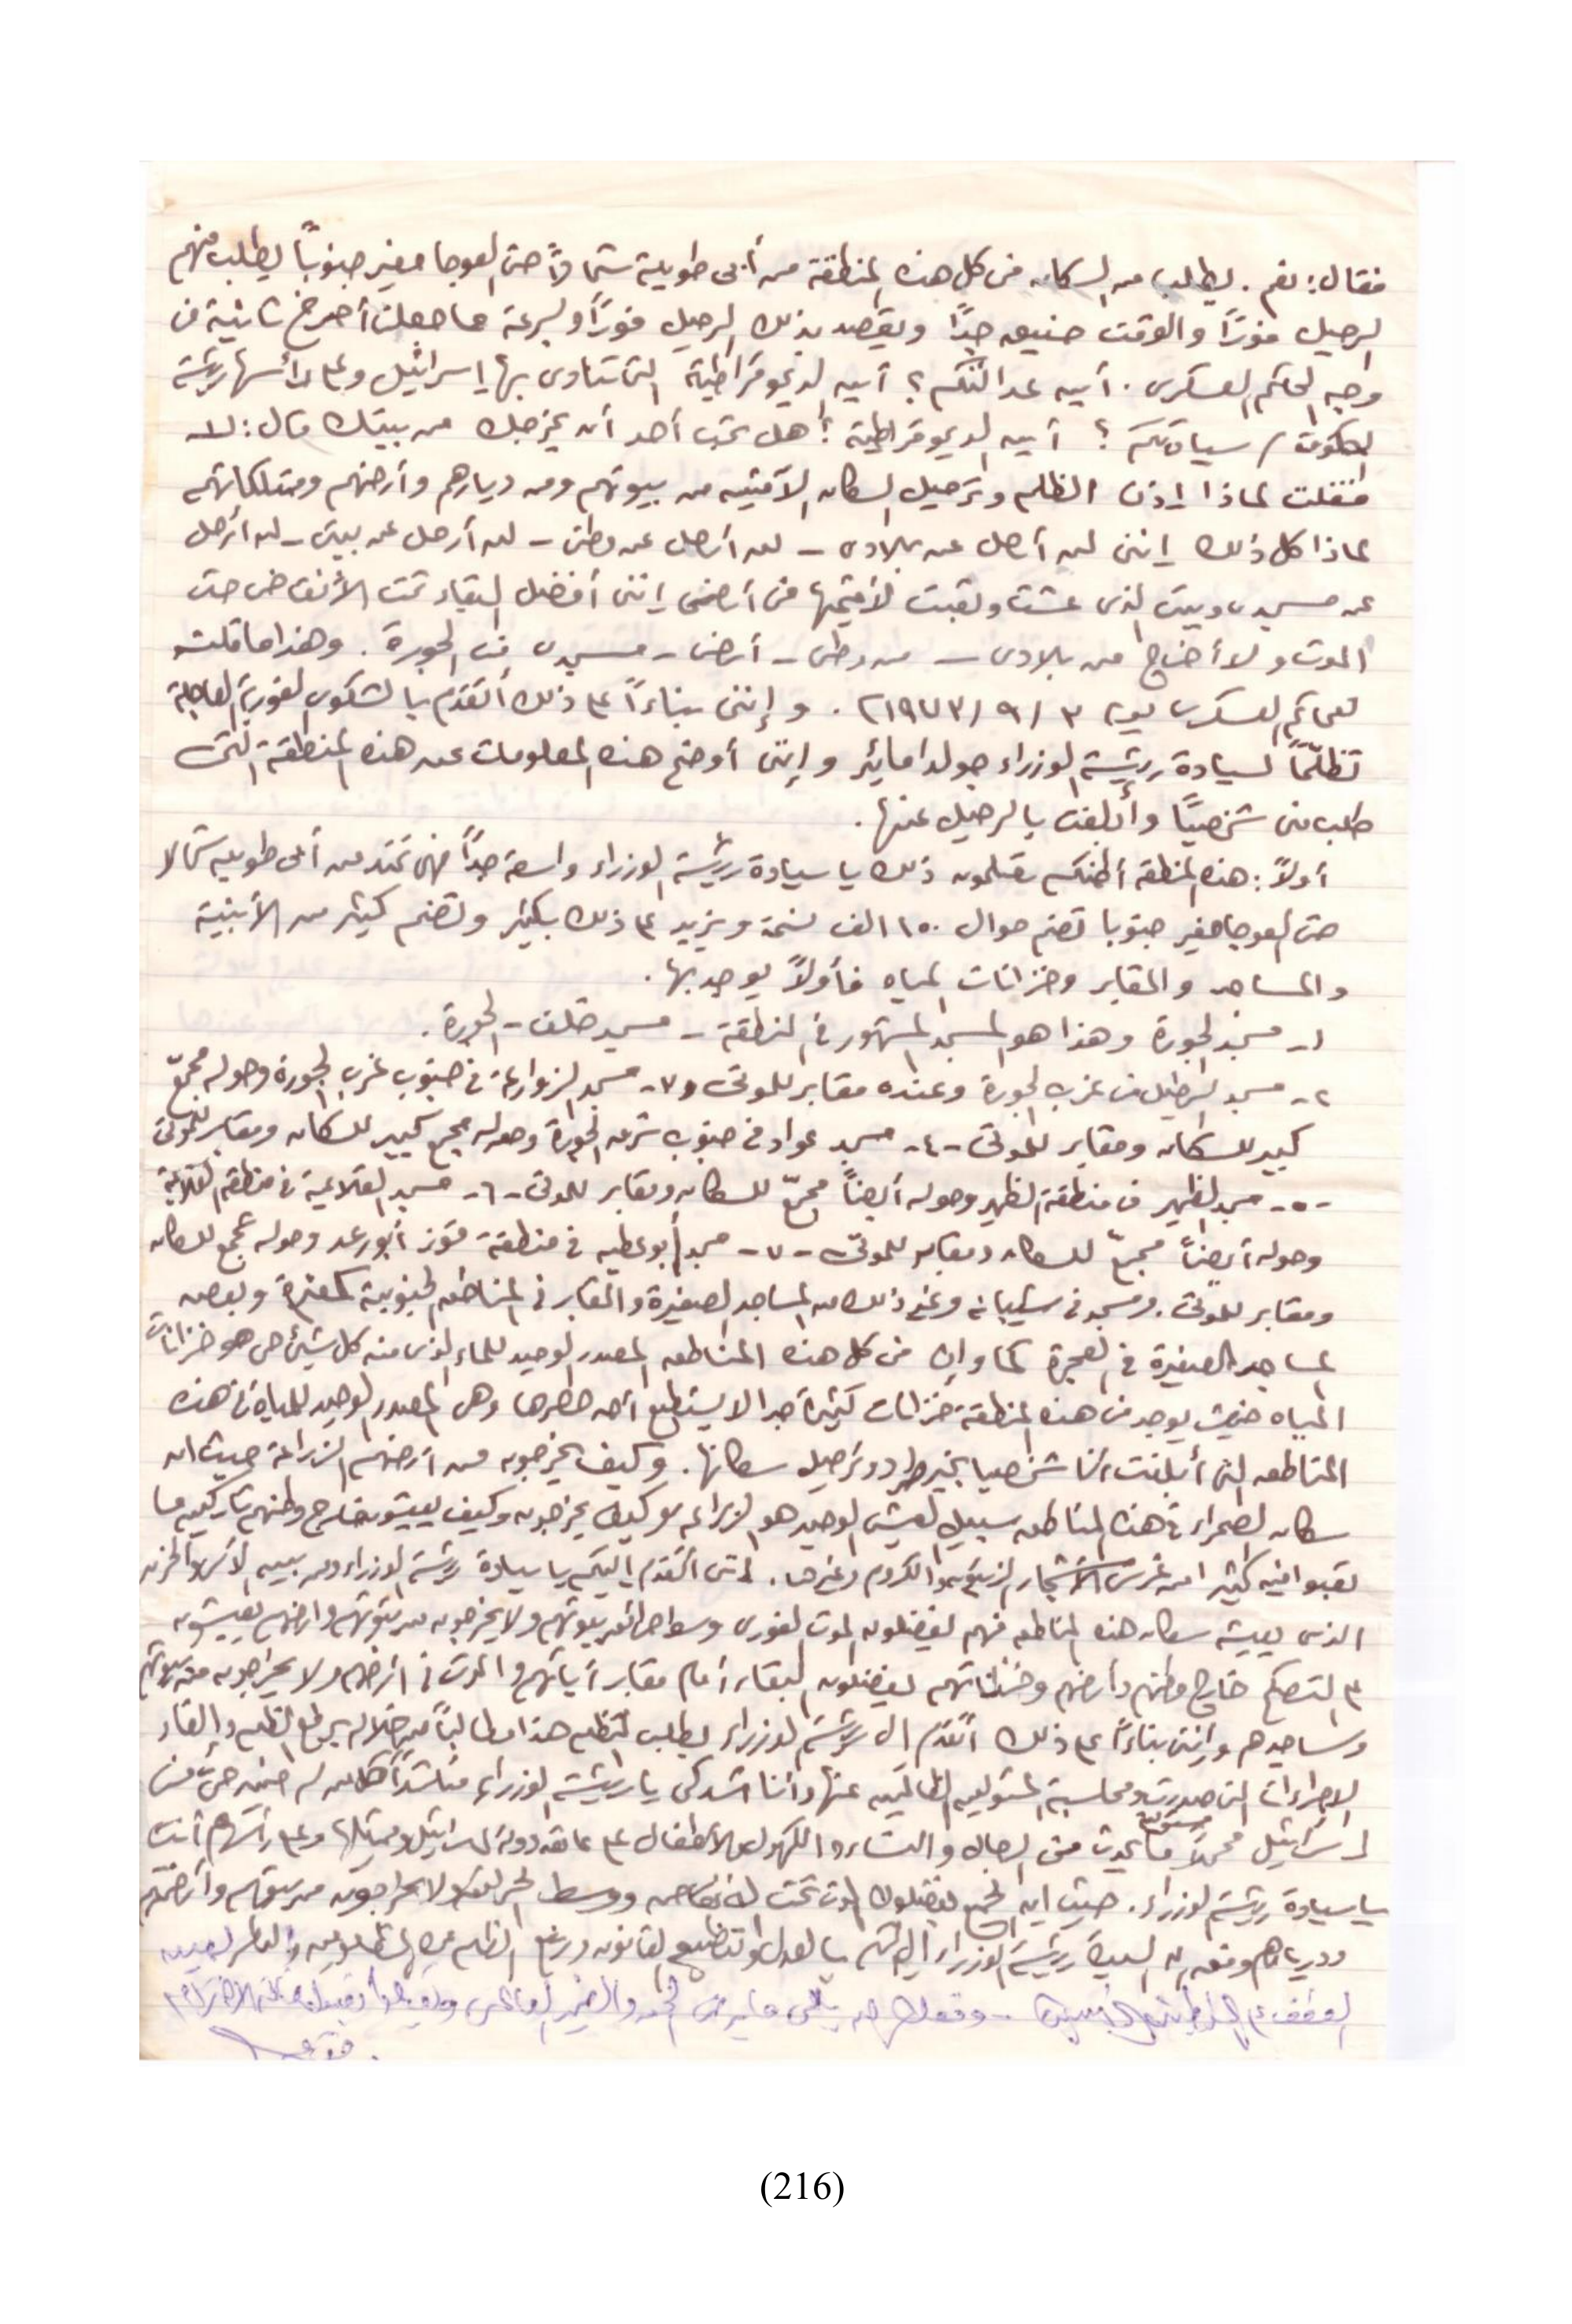 فقال: نعم. يطلب من السكان في كل هذه المنطقة من أبي طويلة شمالاً حتى العوجا حفير جنوباً يطلب منهم
الرحيل فوراً والوقت ضيق جداً ويقصد بذلك الرحيل فوراً وبسرعة مما جعلني أصرخ ثانية في
وجه الحاكم العسكري. أين عدالتكم؟ أين الديموقراطية التي تنادى بها إسرائيل وعلى رأسها رئيسة
الحكومة / سيادتكم؟ أين الديموقراطية؟ هل تحب أحد أن يخرجك من بيتك قال: لا
فقلت لماذا إذن الظلم وترحيل السكان الآمنين من بيوتهم ومن ديارهم وأرضهم وممتلكاتهم
لماذا كل ذلك إنني لن أرحل عن بلادي - لن أرحل عن وطني - لن أرحل عن بيتي - لن أرحل
عن مسجدي وبيتي الذي عشت وتعبت لأقيمها في أرضي إنني أفضل البقاء تحت الأنقاض حتى
الموت ولا أخرج من بلادي - من وطني - أرضي - مسجدي في الجورة. وهذا ما قلته
للحاكم العسكري يوم ٣/٩/١٩٧٣. وإنني بناءاً على ذلك أتقدم بالشكوى الفورية العاجلة
تظلماً لسيادة رئيسة الوزراء جولدا مائير وإنني أوضح هذه المعلومات عن هذه المنطقة التي
طلب مني شخصياً وأبلغت بالرحيل عنها.
أولاً: هذه المنطقة أظنكم تعلمون ذلك يا سيادة رئيسة الوزراء واسعة جداً فهي تمتد من أبى طويلة شمالا
حتى العوجا حفير جنوبا تضم حوالى ١٥٠ الف نسمة ويزيد على ذلك بكثير وتضم كثير من الأبنية
والمساجد والمقابر وخزانات المياه فأولاً يوجد بها.
١- مسجد الجورة وهذا هو المسجد المشهور في المنطقة - مسجد خلف - الجورة.
٢- مسجد في غرب الجورة وعنده مقابر للموتى و٧- مسجد الزوارعة في جنوب غرب الجورة وحوله مجمّع
كبير للسكان ومقابر للموتى -٤- مسجد عواد في جنوب شرق الجورة وحوله مجمع كبير للسكان ومقابر للموتى
-٥- مسجد الظهير في منطقة الظهير وحوله أيضاً مجمّع للسكان ومقابر للموتى -٦- مسجد القلاعية في منطقة القلاعية
وحوله أيضاً مجمّع للسكان ومقابر للموتى -٧- مسجد أبو عطيه في منطقة قوز أبو رعد وحوله مجمع للسكان
ومقابر للموتى. ومسجد في شبيانه وغير ذلك من المساجد الصغيرة والمقابر في المناطق الجنوبية وبعض
المساجد الصغيرة في العجرة كما وان في كل هذه المناطق المصدر الوحيد للماء الذي منه كل شيئ حي هو خزانات
المياه حيث يوجد في هذه المنطقة خزانات كثيرة جدا لا يستطيع أحد حصرها وهي المصدر الوحيد للمياه في هذه
المناطق التي أبلغت أنا شخصيا بخبر طرد وترحيل سكانها. وكيف يخرجون من أرضهم الزراعة حيث ان
سكان الصحراء في هذه المناطق سبيل العيش الوحيد هو الزراعه كيف يخرجون وكيف يعيشون خارج وطنهم تاركين ما
تعبوا فيه كثيرا من غرس الأشجار الزيتون والكروم وغيرها. إنني أتقدم إليكم يا سيادة رئيسة الوزراء ومن بين الأسى والحزن
الذي يعيشه سكان هذه المناطق فهم يفضلون الموت الفوري وسط بيوتهم ولا يخرجون من بيوتهم وأرضهم يعيشون
خارج وطنهم وأرضهم يفضلون البقاء أمام مقابر آبائهم والموت في أرضهم ولا يخرجون من بيوتهم
ومساجدهم وإنني بناءاً على ذلك أتقدم الى رئيسة الوزراء بطلب التظلم هذا مطالباً من خلاله برفع الظلم وإلغاء
الإجراءات التي صدرت ومحاسبة المسئولين الظالمين عنها وأنا أشدكى يا رئيسة الوزراء مناشداً
إسرائيل محملاً ما يحدث من الرجال والنساء والكهول والأطفال على عاتق دولة إسرائيل وعلى رأسهم أنت
يا سيادة رئيسة الوزراء. حيث ان الجميع يفضلون الموت تحت الأنقاض ووسط ولا يخرجون من بيوتهم وأرضهم
وديارهم السيدة رئيسة الوزراء بالعدل وتطبيق القانون ورفع الظلم عن المظلومين
(216)